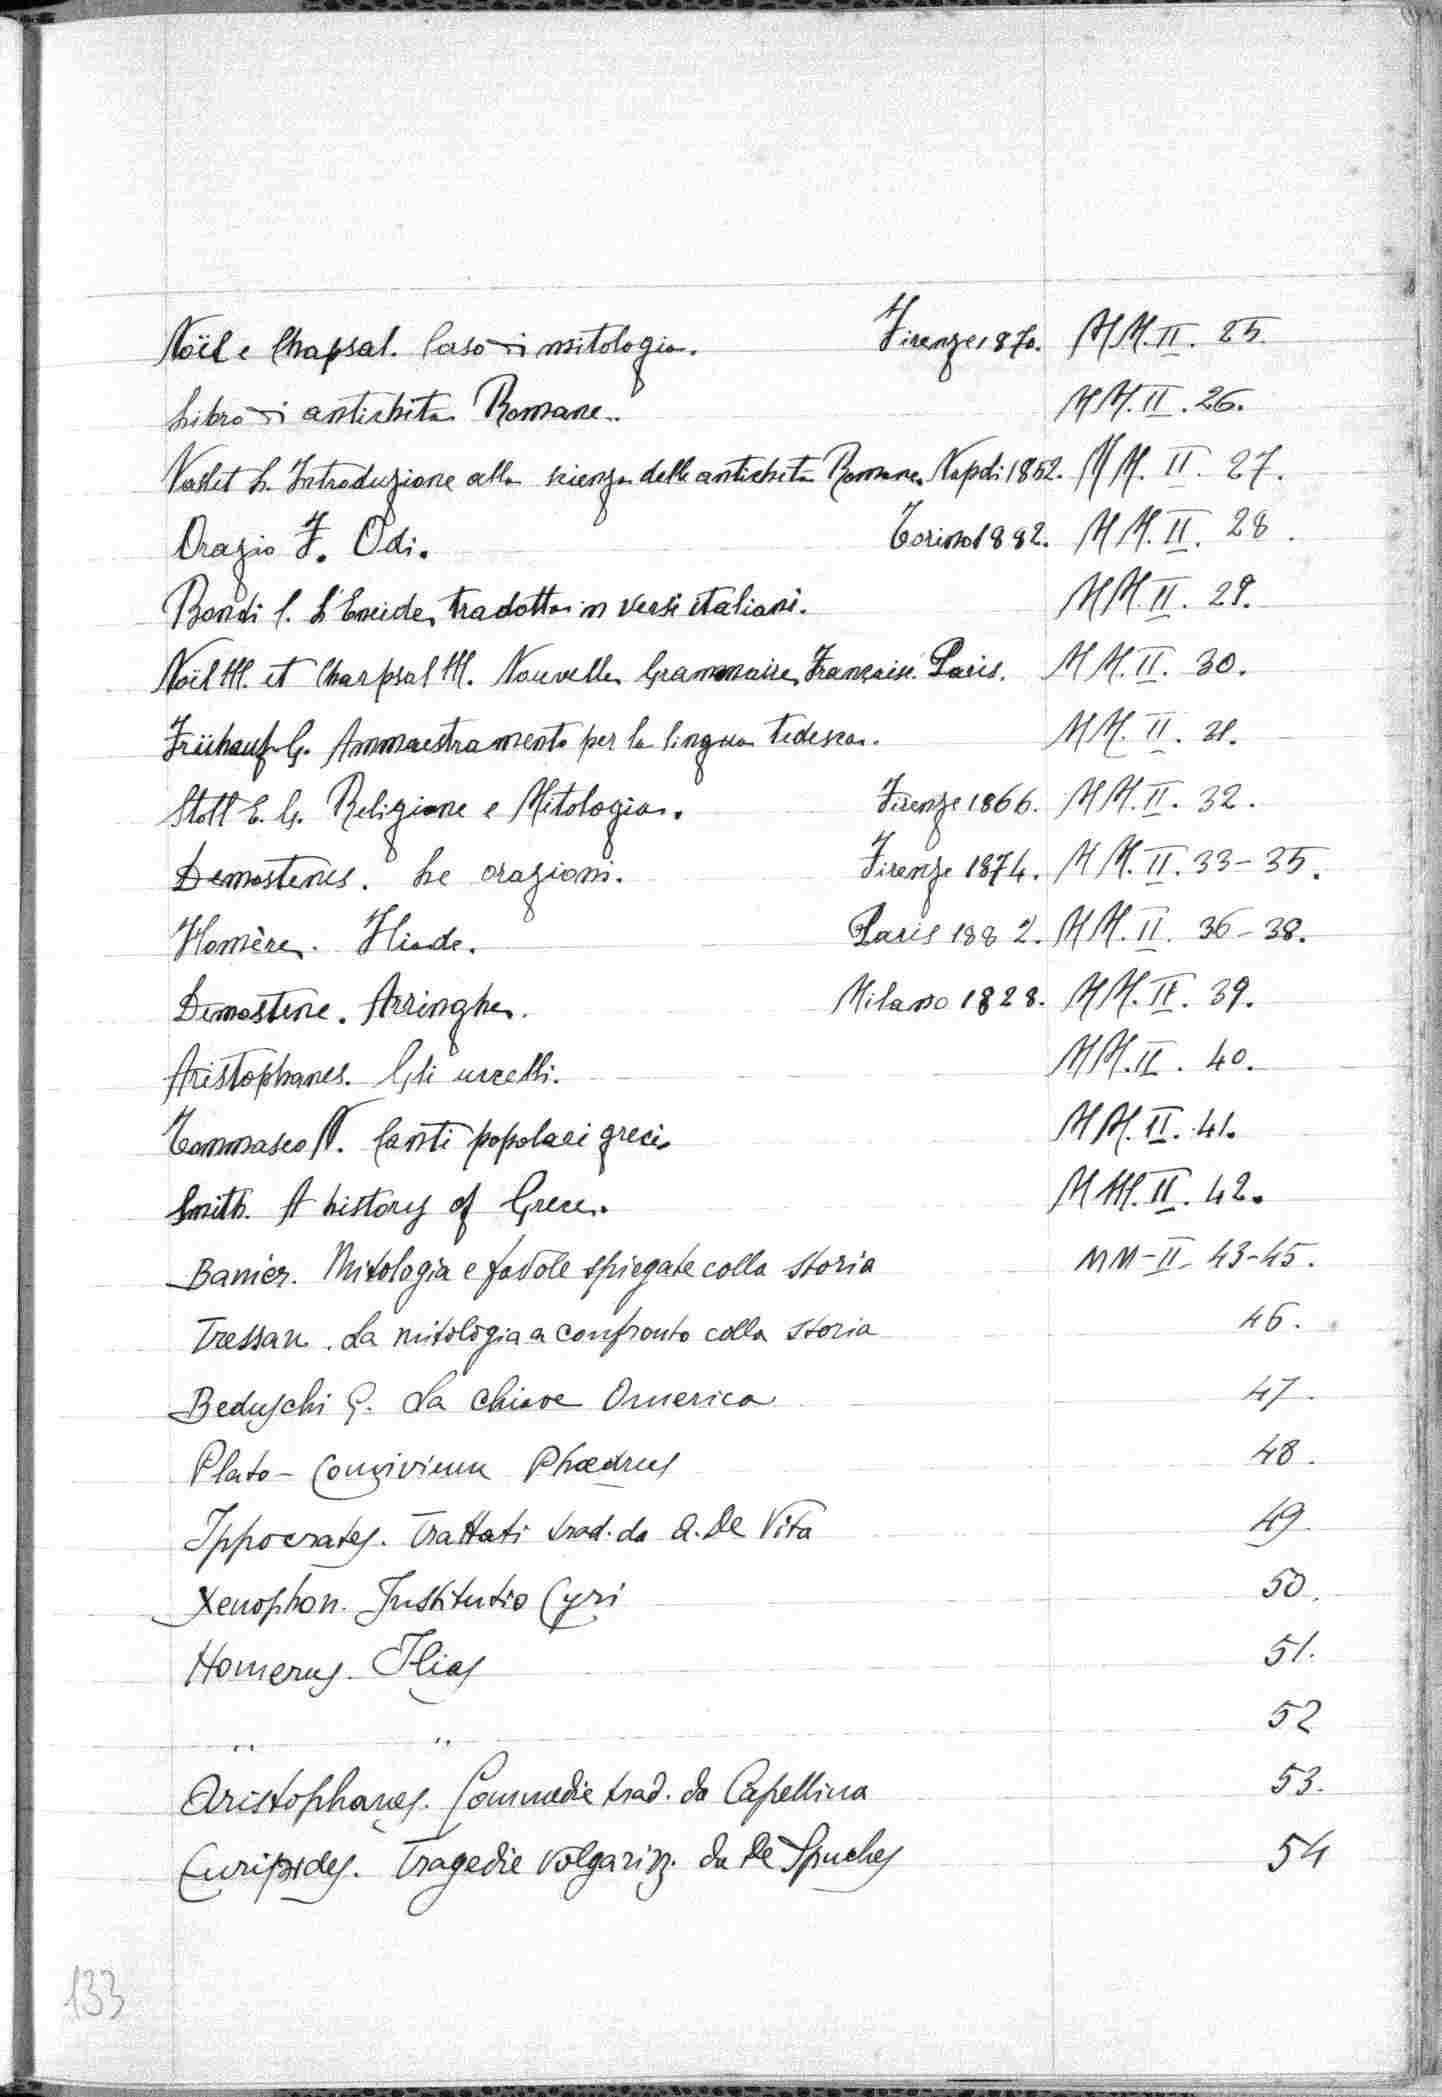 Noël e Chapsal. Caso di mitologia. Firenze 1870. MM. II. 25.
Libro di antichità Romane. MM. II. 26.
Vallet L. Introduzione alla scienza delle antichità Romane. Napoli 1852. MM. II. 27.
Orazio F. Odi. Torino 1882. MM. II. 28.
Bondi C. L'Eneide, tradotta in versi italiani. MM. II. 29.
Noël M. et Charpsal M. Nouvelle Grammaire Française. Paris. MM. II. 30.
Frühauf G. Ammaestramento per la lingua tedesca. MM. II. 31.
Stoll E. G. Religione e Mitologia. Firenze 1866. MM. II. 32.
Demostenes. Le orazioni. Firenze 1874. MM. II. 33-35.
Homère. Iliade. Paris 1882. MM. II. 36-38.
Demostene. Arringhe. Milano 1828. MM. II. 39.
Aristophanes. Gli uccelli. MM. II. 40.
Tommaseo N. Canti popolari greci. MM. II. 41.
Smith. A history of Grece. MM. II. 42.
Banier. Mitologia e favole spiegate colla storia MM-II- 43-45.
Tressan. La mitologia a confronto colla storia 46.
Beduschi G. La chiave Omerica 47.
Plato - Convivium Phædrus 48.
Ippocrates. Trattati trad. da A. De Vita 49.
Xenophon. Institutio Cyri 50.
Homerus. Ilias 51.
" " 52
Aristophanes. Commedie trad. da Capellina 53.
Euripides. Tragedie volgarizz. da De Spuches 54
133